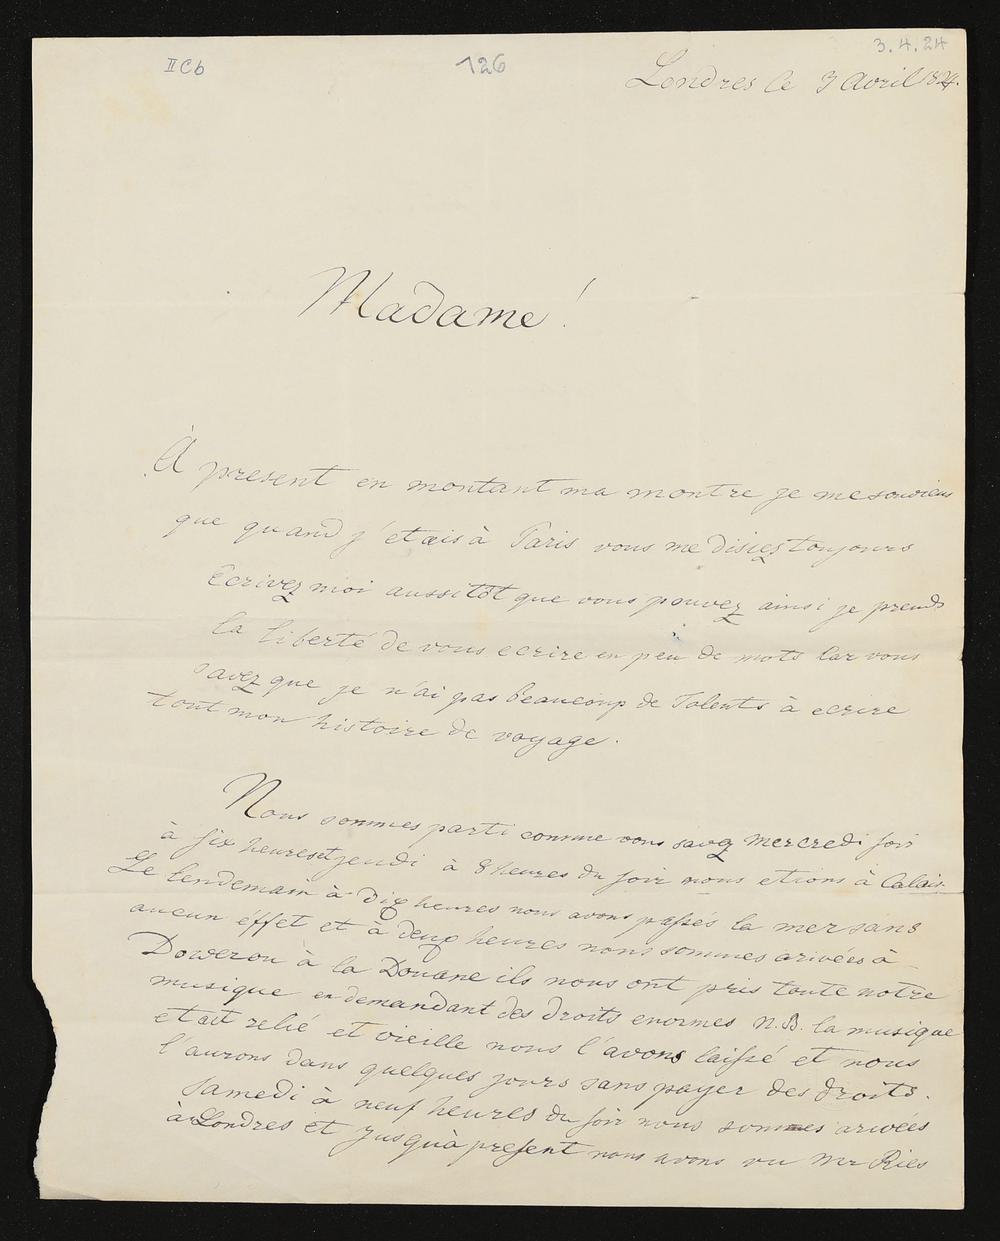 IICb 126 3.4.24
Londres le 3 Avril 1824.
Madame!
À present en montant ma montre je me souviens
que quand j'etais à Paris vous me disiez toujours
Ecrivez moi aussitôt que vous pouvez ainsi je prends
la liberté de vous ecrire en peu de mots Car vous
savez que je n'ai pas beaucoup de Talents à ecrire
tout mon histoire de voyage.
Nous sommes parti comme vous savez Mercredi soir
à six heures et jeudi à 8 heures du soir nous etions à Calais.
Le lendemain à dix heures nous avons passés la mer sans
aucun éffet et à deux heures nous sommes arivées à
Dower ou à la Douane ils nous ont pris toute notre
musique en demandant des droits enormes N.B. la musique
etait relié et vieille nous l'avons laissé et nous
l'aurons dans quelques jours sans payer des droits.
Samedi à neuf heures du soir nous sommes arivées
à Londres et jusquà present nous avons vu Mr Ries